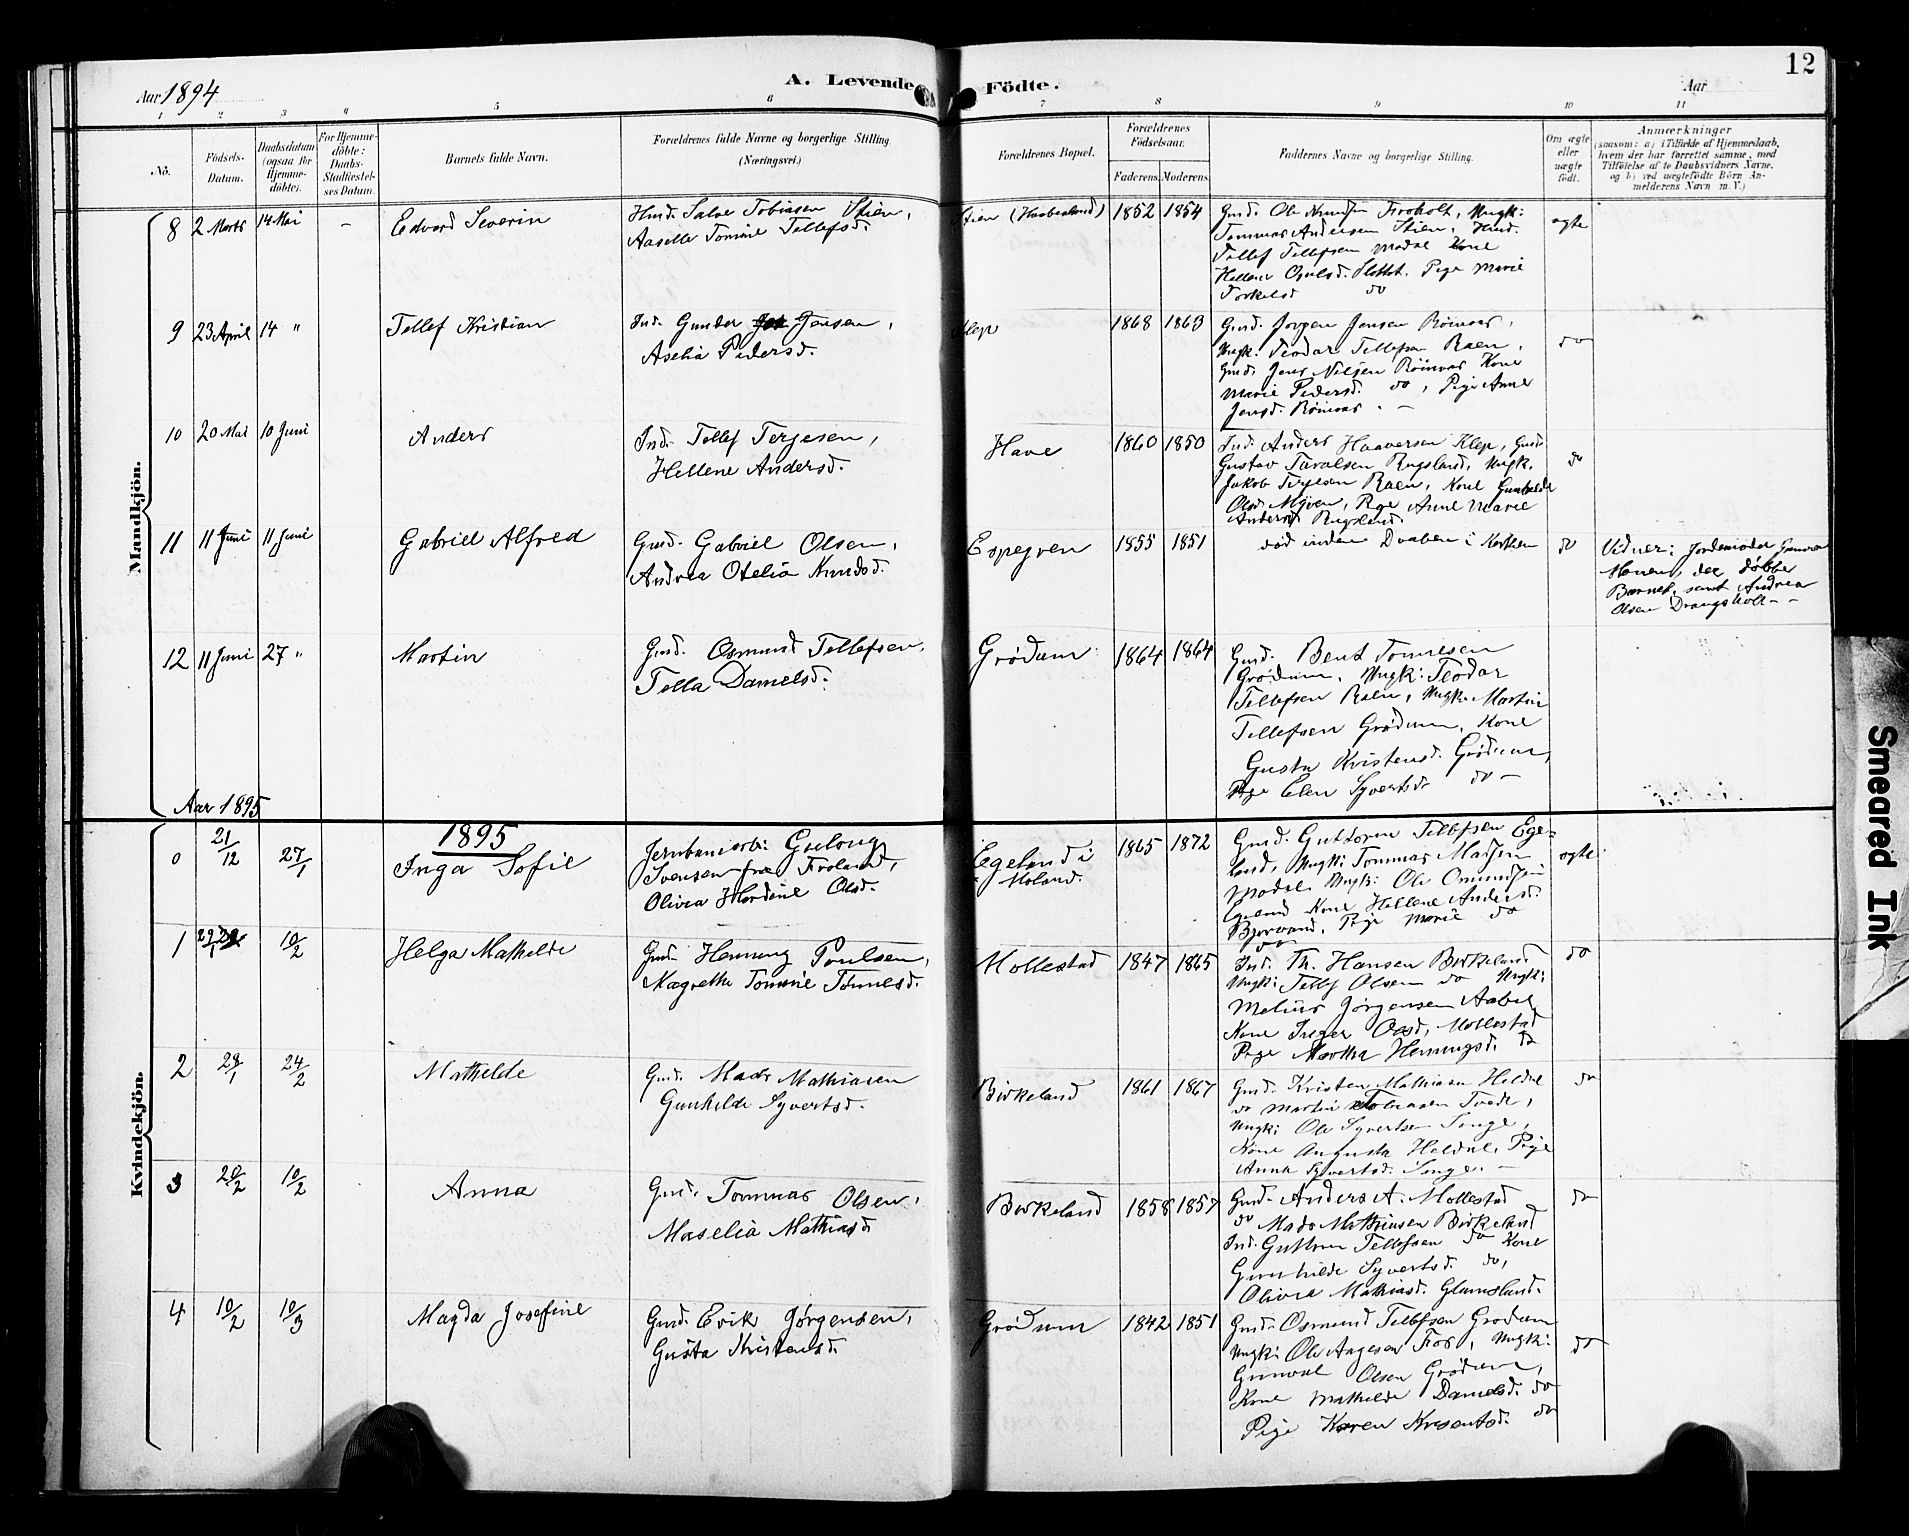 12
Aar 1894
A. Levende Födte.
Aar
1 2 3 4 5 6 7 8 9 10 11
No.
Födsels-
Datum.
Daabsdatum
(ogsaa for
Hjemme-
döbte).
For Hjemme-
döbte:
Daabs-
Stadfæstel-
ses Datum.
Barnets fulde Navn.
Forældrenes fulde Navne og borgerlige Stilling
(Næringsvei.)
Forældrenes Bopæl.
Forældrenes
Födselsaar.
Faderens. Moderens.
Faddernes Navne og borgerlige Stilling.
Om ægte
eller
uægte
födt.
Anmærkninger
(saasom: a) i Tilfælde af Hjemmedaab,
hvem der har forrettet samme, med
Tilföielse af to Daabsvidners Navne,
og b) ved uægtefödte Börn An-
melderens Navn m. V.)
Mandkjön.
8 2 Marts 14 Mai - Edvard Severin
Salve Tobiasen Stien,
Aaselle Tomine Tellefsd.
Stien 1852 1854
Gmd. Ole Knudsen Froholt, Ungk:
Tommas Andersen Stien,
Tellef Tellefsen Modal Kone
Pige Marie
Torkelsd do
ægte
9 23 April 14 " Tellef Kristian
Ind. Gunder Jensen,
Aselia Pedersd.
Klep 1868 1863
Gmd. Jørgen Jensen
Ungk: Teodor Tellefsen Raen,
Gmd. Jens Nilsen Kone
Marie Pedersd. do, Pige Anne
Jensd.
do
10 20 Mai 10 Juni Anders
Ind. Tellef Terjesen,
Hellene Andersd.
Have 1860 1850
Ind. Anders Haaversen Klep, Gmd.
Gustav Taralsen Rugsland, Ungk.
Jakob Terjesen Raen, Kone Gunhilde
Olsd. Pige Anne Marie
Andersd Rugsland
do
11 11 Juni 11 Juni Gabriel Alfred
Gmd. Gabriel Olsen,
Andrea Otelia Knudsd.
Espegren 1855 1851
død inden Daaben i Kirken
do
Vidner: Jordemoder
der døbte
Barnet, samt Andrea
Olsen Drangsholt - -
12 11 Juni 27 " Martin
Gmd. Osmund Tellefsen,
Tella Danielsd.
Grødum 1864 1864
Gmd. Bent Tommesen
Grødum, Ungk: Teodor
Tellefsen Raen, Ungk: Martin
Tellefsen Grødum, Kone
Gusta Kristensd. Grødum,
Pige Elen Syvertsd. do -
Aar 1895
Kvindekjön.
1895
0 21/12 27/1 Inga Sofie
Jernbanearb:
Svensen fra Froland,
Olivia Olsd.
Egeland i
Moland. 1865 1872
Gmd. Guttorm Tellefsen Ege-
land, Ungk: Tommas Madsen
Modal Ungk: Ole Omundsen
Egeland Kone Hellene Andersd.
Pige Marie do
do
ægte
1 10/2 Helga Mathilde
Gmd. Henning Poulsen,
Magrethe Tomine Tønnesd.
Mollestad 1847 1865
Ind. Th. Hansen Birkeland
Ungk: Tellef Olsen do Ungk:
Melius Jørgensen Aabel
Kone Inger Olsd, Mollestad
Pige Martha Henningsd. do
do
2 28/1 24/2 Mathilde
Gmd. Mads Mathiasen
Gunhilde Syvertsd.
Birkeland 1861 1867
Gmd. Kristen Mathiasen Heldal
do Martin Tobiasen Tvede,
Ungk: Ole Syvertsen Songe,
Kone Augusta Heldal, Pige
Anna Syvertsd. Songe. -
do
3 20/2 10/2 Anna
Gmd. Tommas Olsen,
Maselia Mathiasd.
Birkeland 1858 1857
Gmd. Anders A. Mollestad
do Mads Mathiasen Birkeland
Ind. Guttorm Tellefsen do Kone
Gunhilde Syvertsd. do,
Olivia Mathiasd. Glamsland.
do
4 10/2 10/3 Magda Josefine
Gmd. Erik Jørgensen,
Gusta Kristensd.
Grødum 1842 1851
Gmd. Osmund Tellefsen Grødum
Ungk: Ole Aagesen Fos, Ungk:
Gunvald Olsen Grødum,
Kone Mathilde Danielsd. do
Pige Karen do
do
Smeared Ink